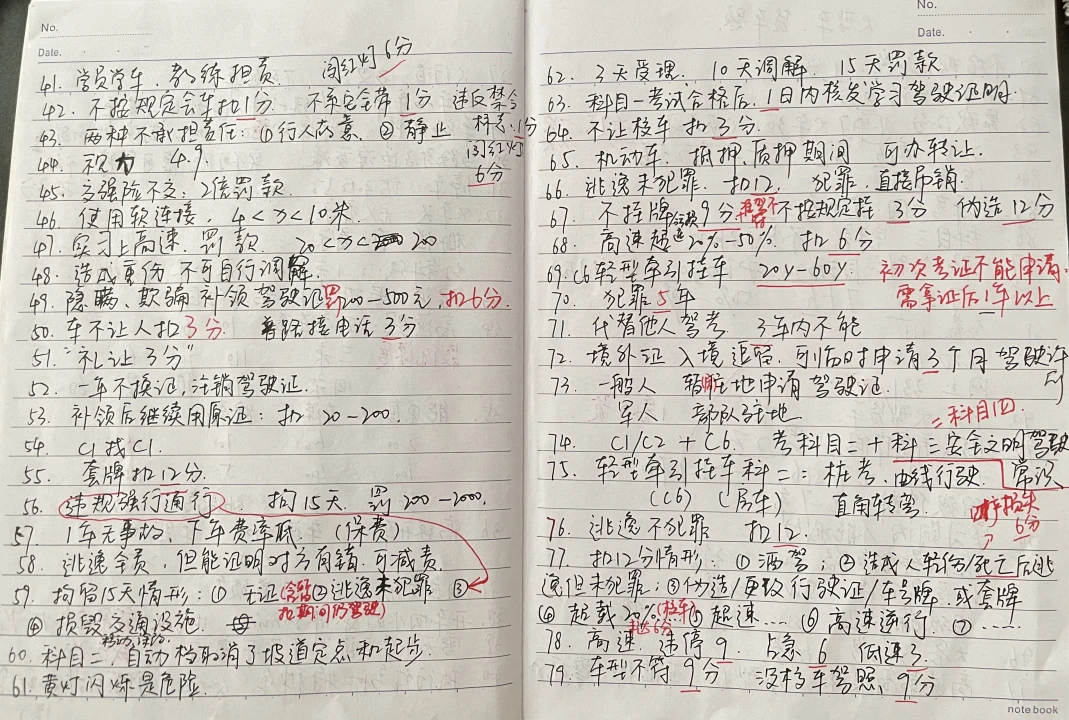 No.
Date.
闯红灯 6分
41. 学员学车，教练担责
42. 不按规定会车扣1分 不系安全带 1分 违反禁令标志 1分
43. 两种不承担责任：①行人故意 ②静止
闯红灯 6分
44. 视力 4.9.
45. 交强险不交：2倍罚款.
46. 使用软连接，4<x<10米.
47. 实习上高速，罚款 20<x<200
48. 造成重伤 不可自行调解.
49. 隐瞒、欺骗补领驾驶证罚200-500元，扣6分.
50. 车不让人扣3分. 普路接电话 3分
51. "礼让3分"
52. 一年不换证，注销驾驶证.
53. 补领后继续用原证：扣 20-200.
54. C1找C1.
55. 套牌扣12分.
56. 违规强行通行 拘15天. 罚200-2000.
57. 1年无事故，下年费率低. (保费)
58. 逃逸全责，但能证明对方有错，可减责.
59. 拘留15天情形：① 无证 ②逃逸未犯罪 ③
扣期间仍驾驶
④ 损毁交通设施.
60. 科目二，自动档取消了坡道定点和起步.
61. 黄灯闪烁是危险.
No.
Date.
62. 3天受理. 10天调解. 15天罚款
63. 科目一考试合格后，1日内核发学习驾驶证明.
64. 不让校车 扣3分.
65. 机动车. 抵押、质押期间 可办转让.
66. 逃逸未犯罪. 扣12. 犯罪，直接吊销.
67. 不挂牌 9分 不按规定挂 3分 伪造12分
68. 高速超速20%-50% 扣6分
69. C6轻型牵引挂车 20y-60y. 初次考证不能申请.
需拿证后1年以上
70. 犯罪5年
71. 代替他人驾考 3年内不能
72. 境外证 入境逗留，可临时申请3个月驾驶许可
73. 一般人 暂住地申请驾驶证.
军人 部队驻地
=科目四
74. C1/C2+C6. 考科目二+科三安全文明驾驶常识
75. 轻型牵引挂车科二：桩考，曲线行驶.
(C6) (房车) 直角转弯.
损失 6分
76. 逃逸不犯罪 扣12.
77. 扣12分情形：①酒驾；②造成人轻伤/死亡后逃
逸但未犯罪；③伪造/更改行驶证/车号牌，或套牌
④ 超载20%(校车) ⑤超速…… ⑥高速逆行. ⑦……
78. 高速. 违停9. 占急6 低速3.
79. 车型不符 9分 没校车驾照 9分
note book